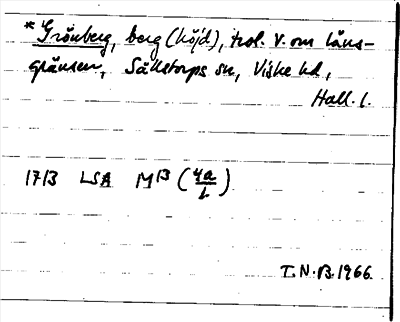 *Grönberg, berg (höjd), trol. V. om läns-
gränsen, Sällstorps sn, Viske hd,
Hall. l.
1713 LSA M13 (4a/2)
T.N.B.1966.